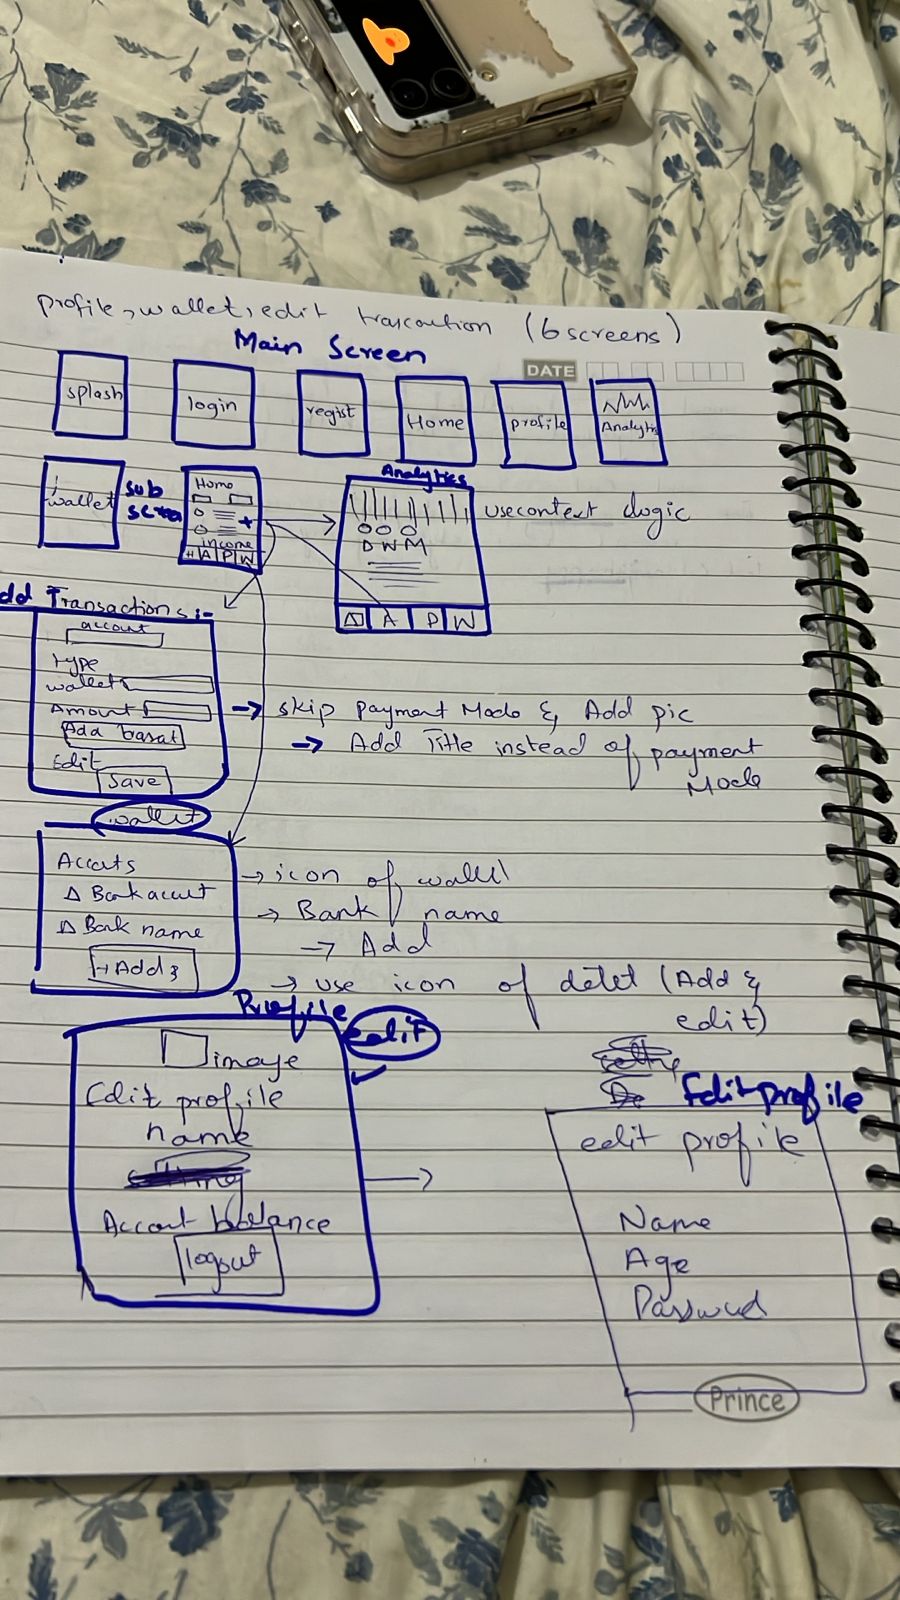 profile, wallet, edit trascaution (6 screens)
Main Screen
DATE
splash
login
regist
Home
profile
Analytis
wallet
sub
Home
income
H A P W
Analytics
D W M
A P W
usecontext logic
dd Transactions:-
accout
type
wallet
Amount
Edit
Save
→ skip payment Mode & Add pic
→ Add Title instead of payment
Mode
wallet
Accouts
Δ Bank accut
Δ Bank name
+Add
→ icon of wallet
→ Bank name
→ Add
→ use icon of delet (Add &
edit)
Profile
edit
image
Edit profile
name
Accout balance
logout
Edit profile
edit profile
Name
Age
Password
Prince